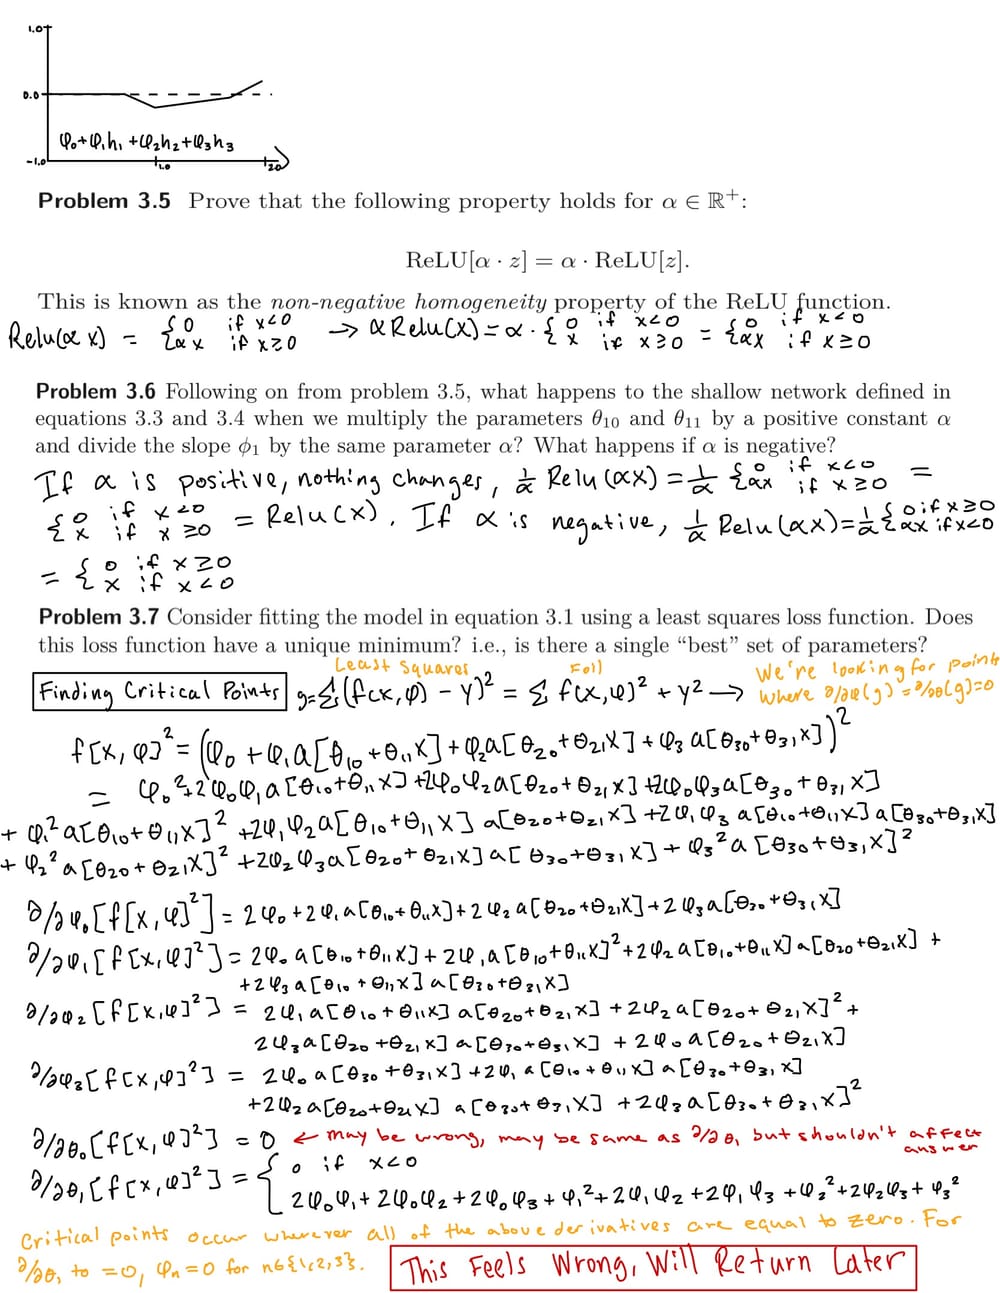 1.0
0.0
φ₀+φ₁h₁+φ₂h₂+φ₃h₃
-1.0
1.0
2.0
Problem 3.5 Prove that the following property holds for α ∈ ℝ⁺:
ReLU[α · z] = α · ReLU[z].
This is known as the non-negative homogeneity property of the ReLU function.
Relu(αx) = {0 if x<0 {αx if x≥0 → αRelu(x) = α · {0 if x<0 {x if x≥0 = {0 if x<0 {αx if x≥0
Problem 3.6 Following on from problem 3.5, what happens to the shallow network defined in
equations 3.3 and 3.4 when we multiply the parameters θ₁₀ and θ₁₁ by a positive constant α
and divide the slope ϕ₁ by the same parameter α? What happens if α is negative?
If α is positive, nothing changes, 1/α Relu(αx) = 1/α {0 if x<0 {αx if x≥0 =
{0 if x<0 {x if x≥0 = Relu(x). If α is negative, 1/α Relu(αx) = 1/α {0 if x≥0 {αx if x<0
= {0 if x≥0 {x if x<0
Problem 3.7 Consider fitting the model in equation 3.1 using a least squares loss function. Does
this loss function have a unique minimum? i.e., is there a single “best” set of parameters?
Least Squares Foil We're looking for points
Finding Critical Points g=Σ(f(x,φ) - y)² = Σ f(x,φ)² + y² → where ∂/∂φ(g) = ∂/∂θ(g)=0
f[x, φ]² = (φ₀ + φ₁a[θ₁₀+θ₁₁x] + φ₂a[θ₂₀+θ₂₁x] + φ₃a[θ₃₀+θ₃₁x])²
= φ₀²+2φ₀φ₁a[θ₁₀+θ₁₁x] +2φ₀φ₂a[θ₂₀+θ₂₁x] +2φ₀φ₃a[θ₃₀+θ₃₁x]
+ φ₁²a[θ₁₀+θ₁₁x]² +2φ₁φ₂a[θ₁₀+θ₁₁x] a[θ₂₀+θ₂₁x] +2φ₁φ₃a[θ₁₀+θ₁₁x] a[θ₃₀+θ₃₁x]
+ φ₂²a[θ₂₀+θ₂₁x]² +2φ₂φ₃a[θ₂₀+θ₂₁x] a[θ₃₀+θ₃₁x] + φ₃²a[θ₃₀+θ₃₁x]²
∂/∂φ₀[f[x,φ]²] = 2φ₀+2φ₁a[θ₁₀+θ₁₁x]+2φ₂a[θ₂₀+θ₂₁x]+2φ₃a[θ₃₀+θ₃₁x]
∂/∂φ₁[f[x,φ]²] = 2φ₀a[θ₁₀+θ₁₁x] + 2φ₁a[θ₁₀+θ₁₁x]²+2φ₂a[θ₁₀+θ₁₁x]a[θ₂₀+θ₂₁x] +
+2φ₃a[θ₁₀+θ₁₁x]a[θ₃₀+θ₃₁x]
∂/∂φ₂[f[x,φ]²] = 2φ₁a[θ₁₀+θ₁₁x] a[θ₂₀+θ₂₁x] +2φ₂a[θ₂₀+θ₂₁x]² +
2φ₃a[θ₂₀+θ₂₁x] a[θ₃₀+θ₃₁x] + 2φ₀a[θ₂₀+θ₂₁x]
∂/∂φ₃[f[x,φ]²] = 2φ₀a[θ₃₀+θ₃₁x] +2φ₁a[θ₁₀+θ₁₁x] a[θ₃₀+θ₃₁x]
+2φ₂a[θ₂₀+θ₂₁x] a[θ₃₀+θ₃₁x] +2φ₃a[θ₃₀+θ₃₁x]²
∂/∂θ₀[f[x,φ]²] = 0 ← may be wrong, may be same as ∂/∂θ₁ but shouldn't affect answer
∂/∂θ₁[f[x,φ]²] = {0 if x<0
{2φ₀φ₁+2φ₀φ₂+2φ₀φ₃+φ₁²+2φ₁φ₂+2φ₁φ₃+φ₂²+2φ₂φ₃+φ₃²
Critical points occur wherever all of the above derivatives are equal to zero. For
∂/∂θ₁ to =0, φₙ=0 for n∈{1,2,3}. This Feels Wrong, Will Return Later